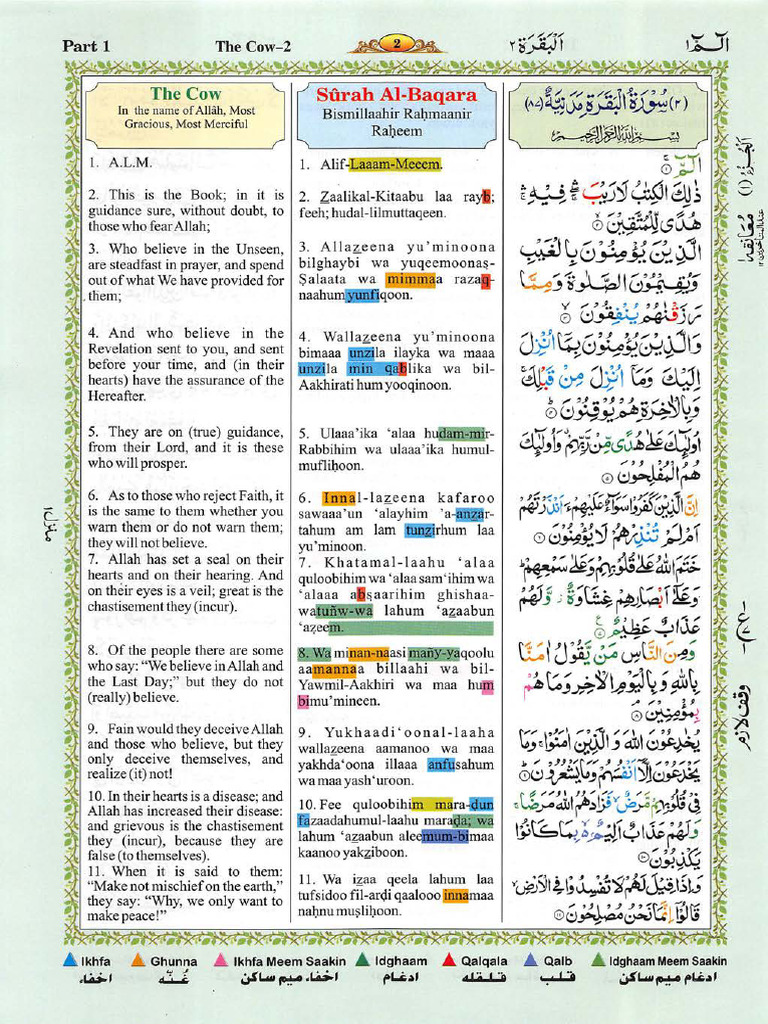 Part 1
The Cow–2
2
اَلْبَقَرَة ٢
الٓـمّٓ ١
The Cow
In the name of Allâh, Most
Gracious, Most Merciful
1. A.L.M.
2. This is the Book; in it is
guidance sure, without doubt, to
those who fear Allah;
3. Who believe in the Unseen,
are steadfast in prayer, and spend
out of what We have provided for
them;
4. And who believe in the
Revelation sent to you, and sent
before your time, and (in their
hearts) have the assurance of the
Hereafter.
5. They are on (true) guidance,
from their Lord, and it is these
who will prosper.
6. As to those who reject Faith, it
is the same to them whether you
warn them or do not warn them;
they will not believe.
7. Allah has set a seal on their
hearts and on their hearing. And
on their eyes is a veil; great is the
chastisement they (incur).
8. Of the people there are some
who say: “We believe in Allah and
the Last Day;” but they do not
(really) believe.
9. Fain would they deceive Allah
and those who believe, but they
only deceive themselves, and
realize (it) not!
10. In their hearts is a disease; and
Allah has increased their disease:
and grievous is the chastisement
they (incur), because they are
false (to themselves).
11. When it is said to them:
“Make not mischief on the earth,”
they say: “Why, we only want to
make peace!”
Sûrah Al-Baqara
Bismillaahir Raḥmaanir
Raḥeem
1. Alif-Laaam-Meeem.
2. Z̲aalikal-Kitaabu laa rayb;
feeh; hudal-lilmuttaqeen.
3. Allaz̲eena yu’minoona
bilghaybi wa yuqeemoonaṣ-
Ṣalaata wa mimmaa razaq-
naahum yunfiqoon.
4. Wallaz̲eena yu’minoona
bimaaa unzila ilayka wa maaa
unzila min qablika wa bil-
Aakhirati hum yooqinoon.
5. Ulaaa’ika ‘alaa hudam-mir-
Rabbihim wa ulaaa’ika humul-
mufliḥoon.
6. Innal-laz̲eena kafaroo
sawaaa’un ‘alayhim ’a-anz̲ar-
tahum am lam tunz̲irhum laa
yu’minoon.
7. Khatamal-laahu ‘alaa
quloobihim wa ‘alaa sam‘ihim wa
‘alaaa abṣaarihim ghishaa-
watuñw-wa lahum ‘az̲aabun
‘az̲eem.
8. Wa minan-naasi mañy-yaqoolu
aamannaa billaahi wa bil-
Yawmil-Aakhiri wa maa hum
bimu’mineen.
9. Yukhaadi‘oonal-laaha
wallaz̲eena aamanoo wa maa
yakhda‘oona illaaa anfusahum
wa maa yash‘uroon.
10. Fee quloobihim maraḍun
fazaadahumul-laahu maraḍa; wa
lahum ‘az̲aabun aleemum-bimaa
kaanoo yakz̲iboon.
11. Wa iz̲aa qeela lahum laa
tufsidoo fil-arḍi qaalooo innamaa
naḥnu muṣliḥoon.
(٢) سُوْرَةُ الْبَقَرَةِ مَدَنِيَّةٌ (٨٧)
بِسْمِ اللّٰهِ الرَّحْمٰنِ الرَّحِيْمِ
الٓمّٓ ۚ ١
ذٰلِكَ الْكِتٰبُ لَا رَيْبَ ۛۖ فِيْهِ ۛۚ
هُدًى لِّلْمُتَّقِيْنَ ۙ ٢
الَّذِيْنَ يُؤْمِنُوْنَ بِالْغَيْبِ
وَيُقِيْمُوْنَ الصَّلٰوةَ وَمِمَّا
رَزَقْنٰهُمْ يُنْفِقُوْنَ ۙ ٣
وَالَّذِيْنَ يُؤْمِنُوْنَ بِمَاۤ اُنْزِلَ
اِلَيْكَ وَمَاۤ اُنْزِلَ مِنْ قَبْلِكَ ۚ
وَبِالْاٰخِرَةِ هُمْ يُوْقِنُوْنَ ؕ ٤
اُولٰٓئِكَ عَلٰى هُدًى مِّنْ رَّبِّهِمْ ۗ وَاُولٰٓئِكَ
هُمُ الْمُفْلِحُوْنَ ٥
اِنَّ الَّذِيْنَ كَفَرُوْا سَوَآءٌ عَلَيْهِمْ ءَاَنْذَرْتَهُمْ
اَمْ لَمْ تُنْذِرْهُمْ لَا يُؤْمِنُوْنَ ٦
خَتَمَ اللّٰهُ عَلٰى قُلُوْبِهِمْ وَعَلٰى سَمْعِهِمْ ؕ
وَعَلٰٓى اَبْصَارِهِمْ غِشَاوَةٌ ۫ وَّلَهُمْ
عَذَابٌ عَظِيْمٌ ۧ ٧
وَمِنَ النَّاسِ مَنْ يَّقُوْلُ اٰمَنَّا
بِاللّٰهِ وَبِالْيَوْمِ الْاٰخِرِ وَمَا هُمْ
بِمُؤْمِنِيْنَ ۘ ٨
يُخٰدِعُوْنَ اللّٰهَ وَالَّذِيْنَ اٰمَنُوْا ۚ وَمَا
يَخْدَعُوْنَ اِلَّاۤ اَنْفُسَهُمْ وَمَا يَشْعُرُوْنَ ؕ ٩
فِيْ قُلُوْبِهِمْ مَّرَضٌ ۙ فَزَادَهُمُ اللّٰهُ مَرَضًا ۚ
وَلَهُمْ عَذَابٌ اَلِيْمٌ ۢ ۙ بِمَا كَانُوْا
يَكْذِبُوْنَ ١٠
وَاِذَا قِيْلَ لَهُمْ لَا تُفْسِدُوْا فِى الْاَرْضِ ۙ
قَالُوْۤا اِنَّمَا نَحْنُ مُصْلِحُوْنَ ١١
اَلْجُزْءُ (١)
معانقه ١
وقف لازم
Ikhfa
Ghunna
Ikhfa Meem Saakin
Idghaam
Qalqala
Qalb
Idghaam Meem Saakin
اخفاء
غُنّه
اخفاء ميم ساكن
ادغام
قلقله
قلب
ادغام ميم ساكن